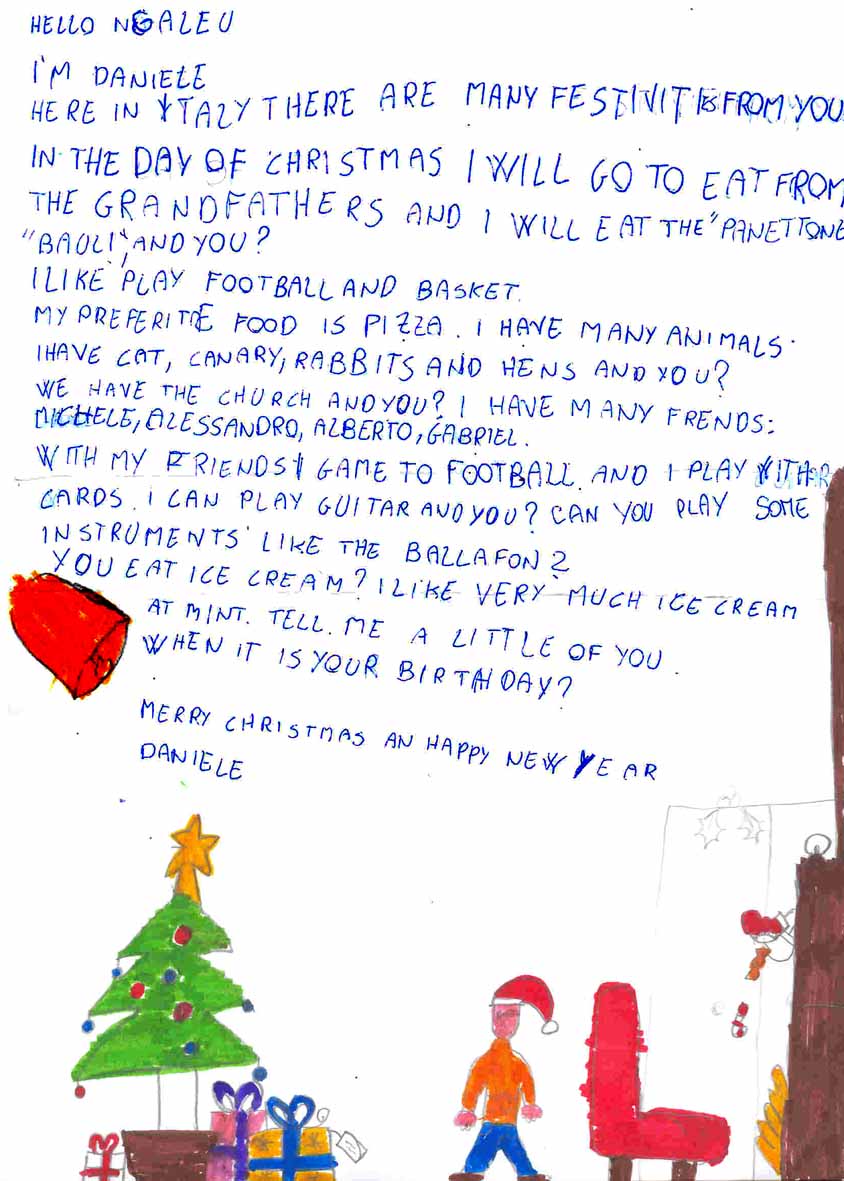 HELLO NGALEU
I'M DANIELE
HERE IN ITALY THERE ARE MANY FESTIVITIES FROM YOU
IN THE DAY OF CHRISTMAS I WILL GO TO EAT FROM
THE GRANDFATHERS AND I WILL EAT THE "PANETTONE
"BAULI", AND YOU?
I LIKE PLAY FOOTBALL AND BASKET.
MY PREFERITE FOOD IS PIZZA. I HAVE MANY ANIMALS.
I HAVE CAT, CANARY, RABBITS AND HENS AND YOU?
WE HAVE THE CHURCH AND YOU? I HAVE MANY FRENDS:
MICHELE, ALESSANDRO, ALBERTO, GABRIEL.
WITH MY FRIENDS I GAME TO FOOTBALL. AND I PLAY WITH
CARDS. I CAN PLAY GUITAR AND YOU? CAN YOU PLAY SOME
INSTRUMENTS LIKE THE BALLAFON?
YOU EAT ICE CREAM? I LIKE VERY MUCH ICE CREAM
AT MINT. TELL. ME A LITTLE OF YOU.
WHEN IT IS YOUR BIRTHDAY?
MERRY CHRISTMAS AN HAPPY NEW YEAR
DANIELE